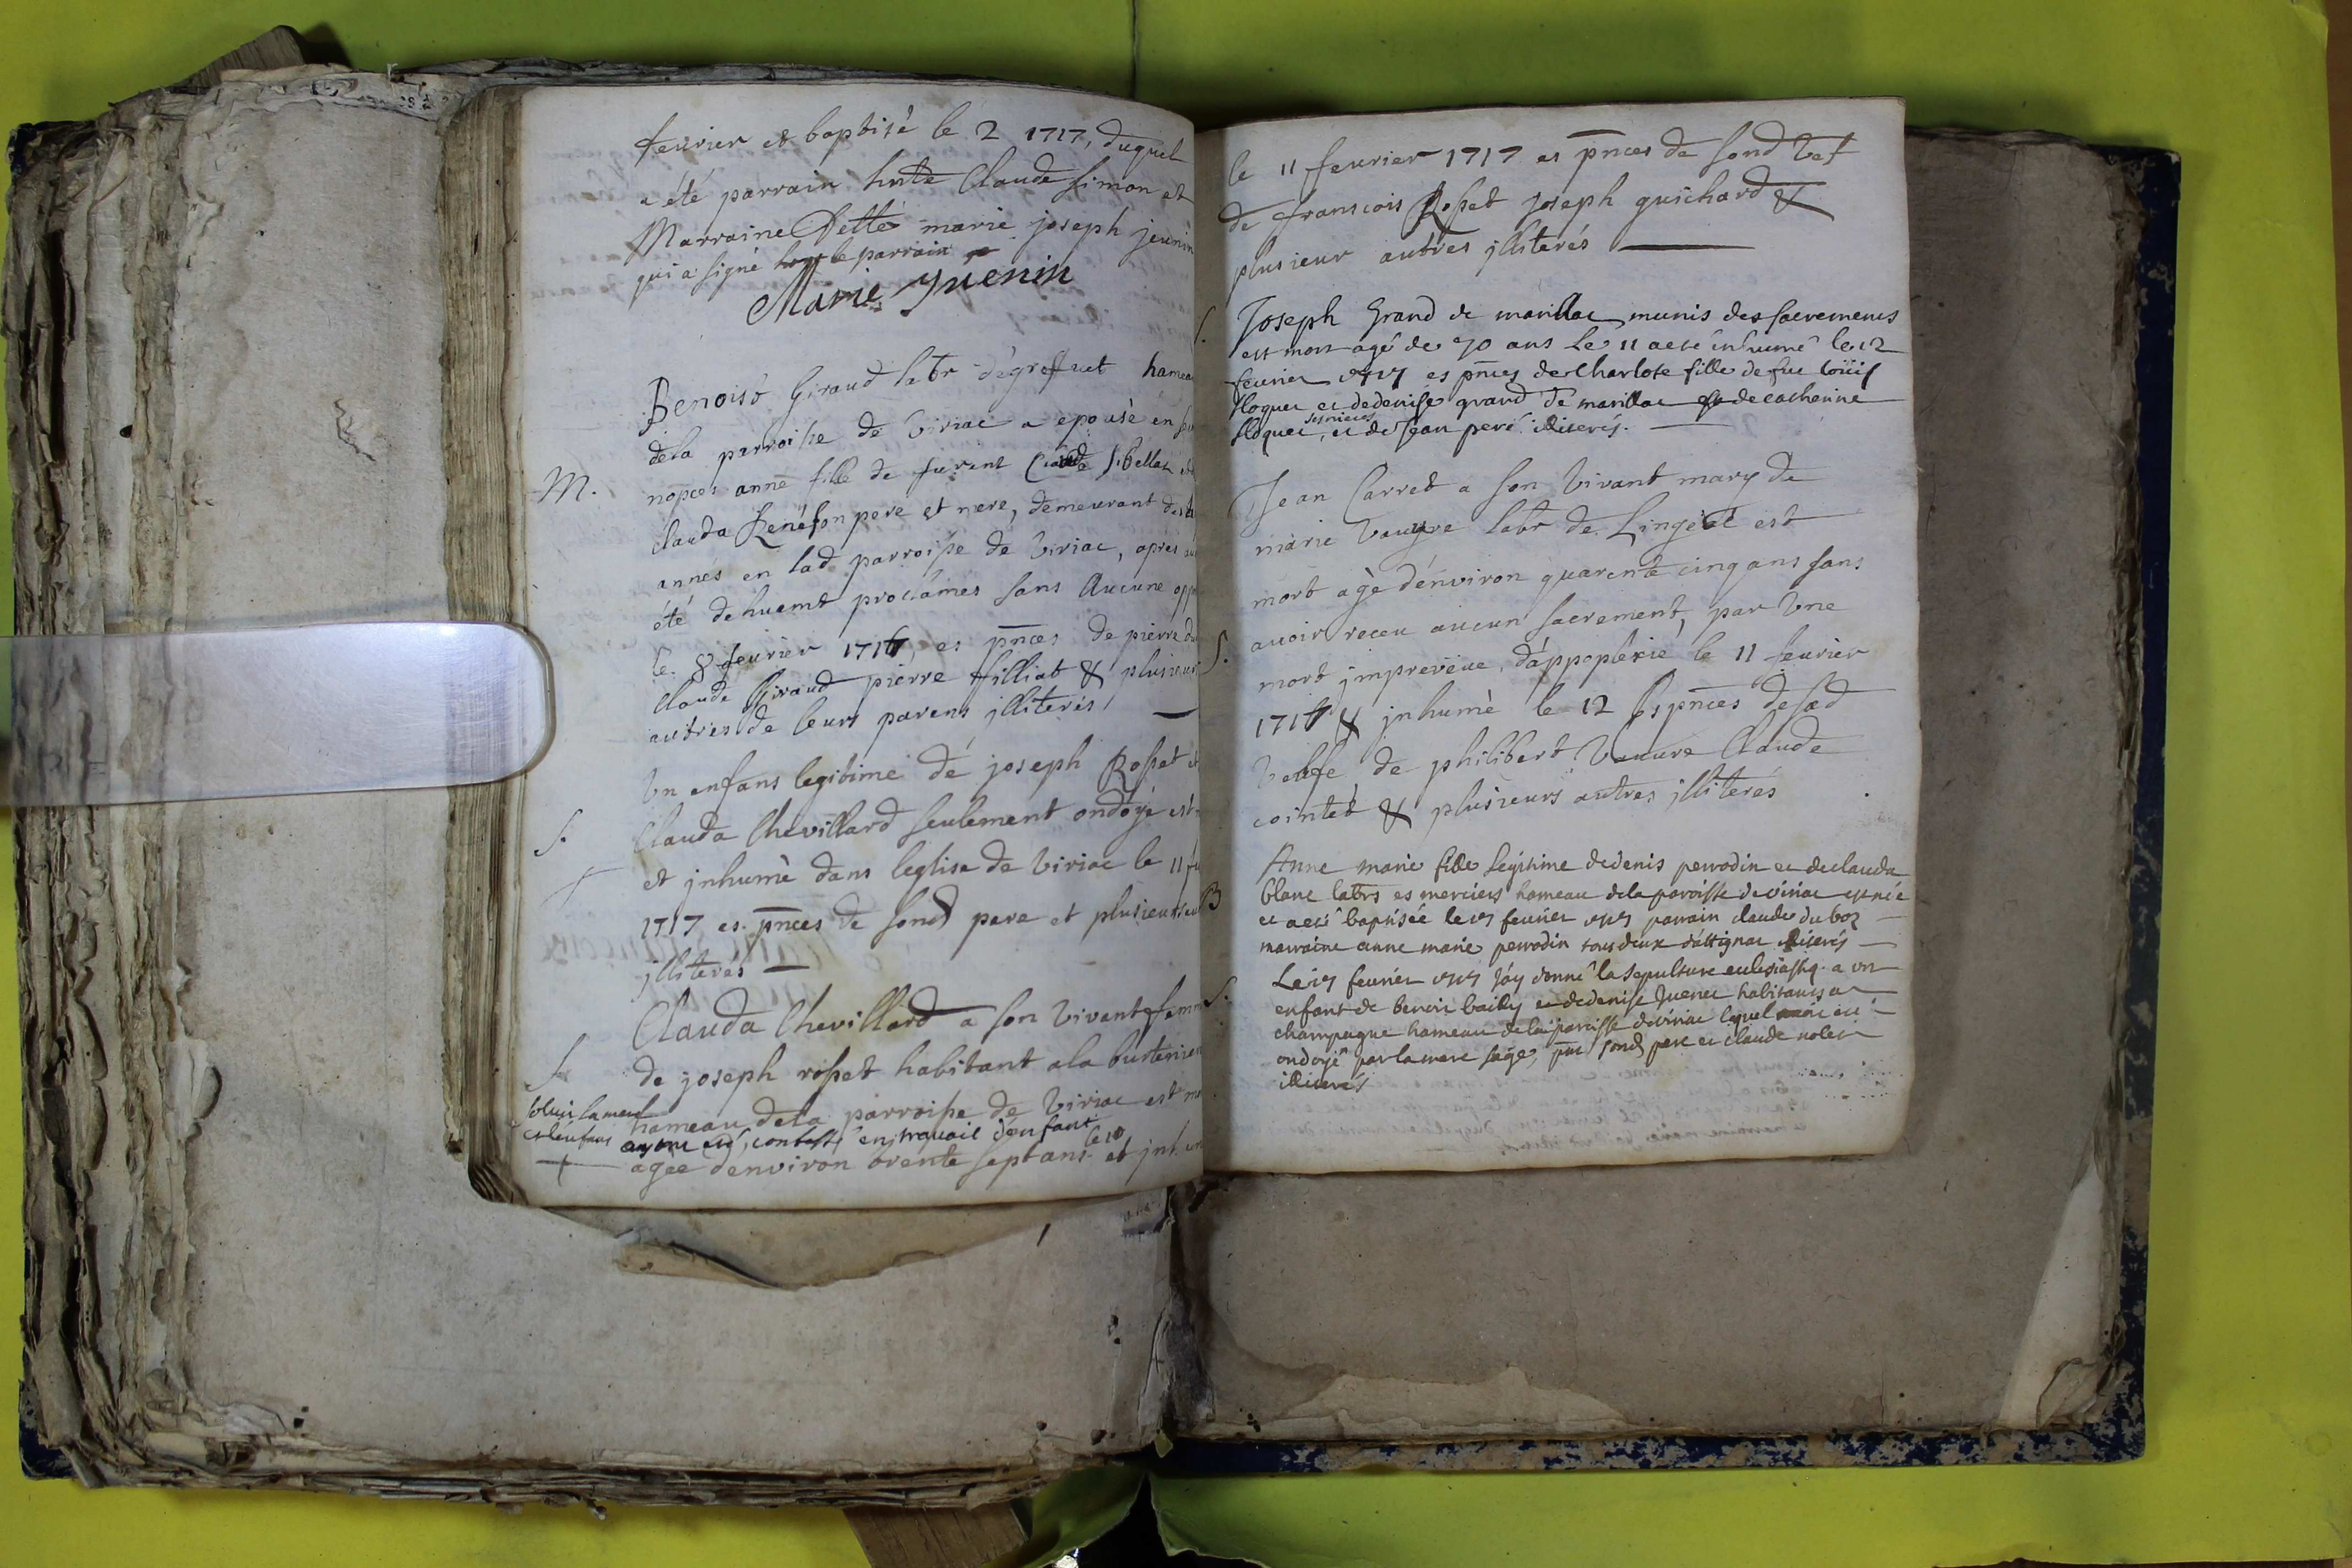 feurier et baptisé le 2 1717, duquel
a été parrain hnte Claude Simon et
Marraine Delle marie joseph jeunin
qui a signé le parrain
Marie Juenin
Benoist Giraud labr hameau
dela parroisse de Viriac a epousé en
M. nopces anne fille de furent Claude sibellas
clauda pere et mere, demeurant
annes en lad parroisse de Viriac, apres
été dehuemt proclamés sans Aucune
le 8 feurier 1717, es pnces de pierre
Claude Giraud pierre filliat & plusieurs
autres de leurs parens jlliterés
Vn enfans legitime de joseph Rosset et
S. Clauda Chevillard seulement ondoyé est
et jnhumé dans leglise de Viriac le 11
1717 es pnces de sond pere et plusieurs
jlliterés
Clauda Chevillard a son Vivant femme
S. de joseph rosset habitant ala
hameau dela parroisse de Viriac est
en travail d'enfant
agée denviron trente sept ans le 10 et
le 11 feurier 1717 es pnces de sond
de francois Rosset joseph guichard &
plusieur autres jlliterés
S. Joseph Grand de marillac munis des sacrements
est mort agé de 70 ans le 11 a eté inhumé le 12
feurier 1717 es pnces de Charlote fille de feu Loüis
floquet et de denise grand de marillac de catherine
floquet, ses nieces et de Jean peré illiterés.
Jean Carret a son Vivant mary de
marie Vauyre labr de Lingeat est
mort agè d'environ quarente cinq ans sans
avoir receu aucun sacrement, par Une
S. mort jmpreveüe, d'appoplexie le 11 feurier
1717 & jnhumé le 12 es pnces de sad
Veufe de philibert Vauure Claude
cointet & plusieurs autres jlliterés
Anne marie fille legitime de denis perrodin et de clauda
blanc labrs es merciers hameau dela paroisse de viriac est née
B et a eté baptisée le 17 feurier 1717 parrain claude du boz
marraine anne marie perrodin tous deux d'attignac illiterés
Le 17 feurier 1717 j'ay donné la sepulture eclesiastiq. a vn
S. enfant de benoit bailly et de denise Juenet habitants a
champagne hameau dela paroisse de viriac lequel
ondoyé par la mere sage, pnt sond pere et claude
illiterés